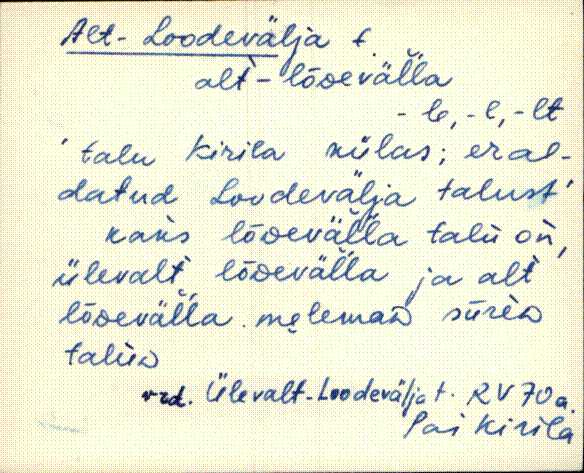 Alt-Loodevälja t.
alt-lõøevälla
-le, -l, -lt
'talu Kirila külas; eral-
datud Loodevälja talust'
kaks lõøevälla talu on,
ülevalt lõøevälla ja alt
lõøevälla. melemaᴅ sūrèᴅ
taluᴅ
vrd. Ülevalt-Loodevälja t. RV 70a.
Pai Kirila